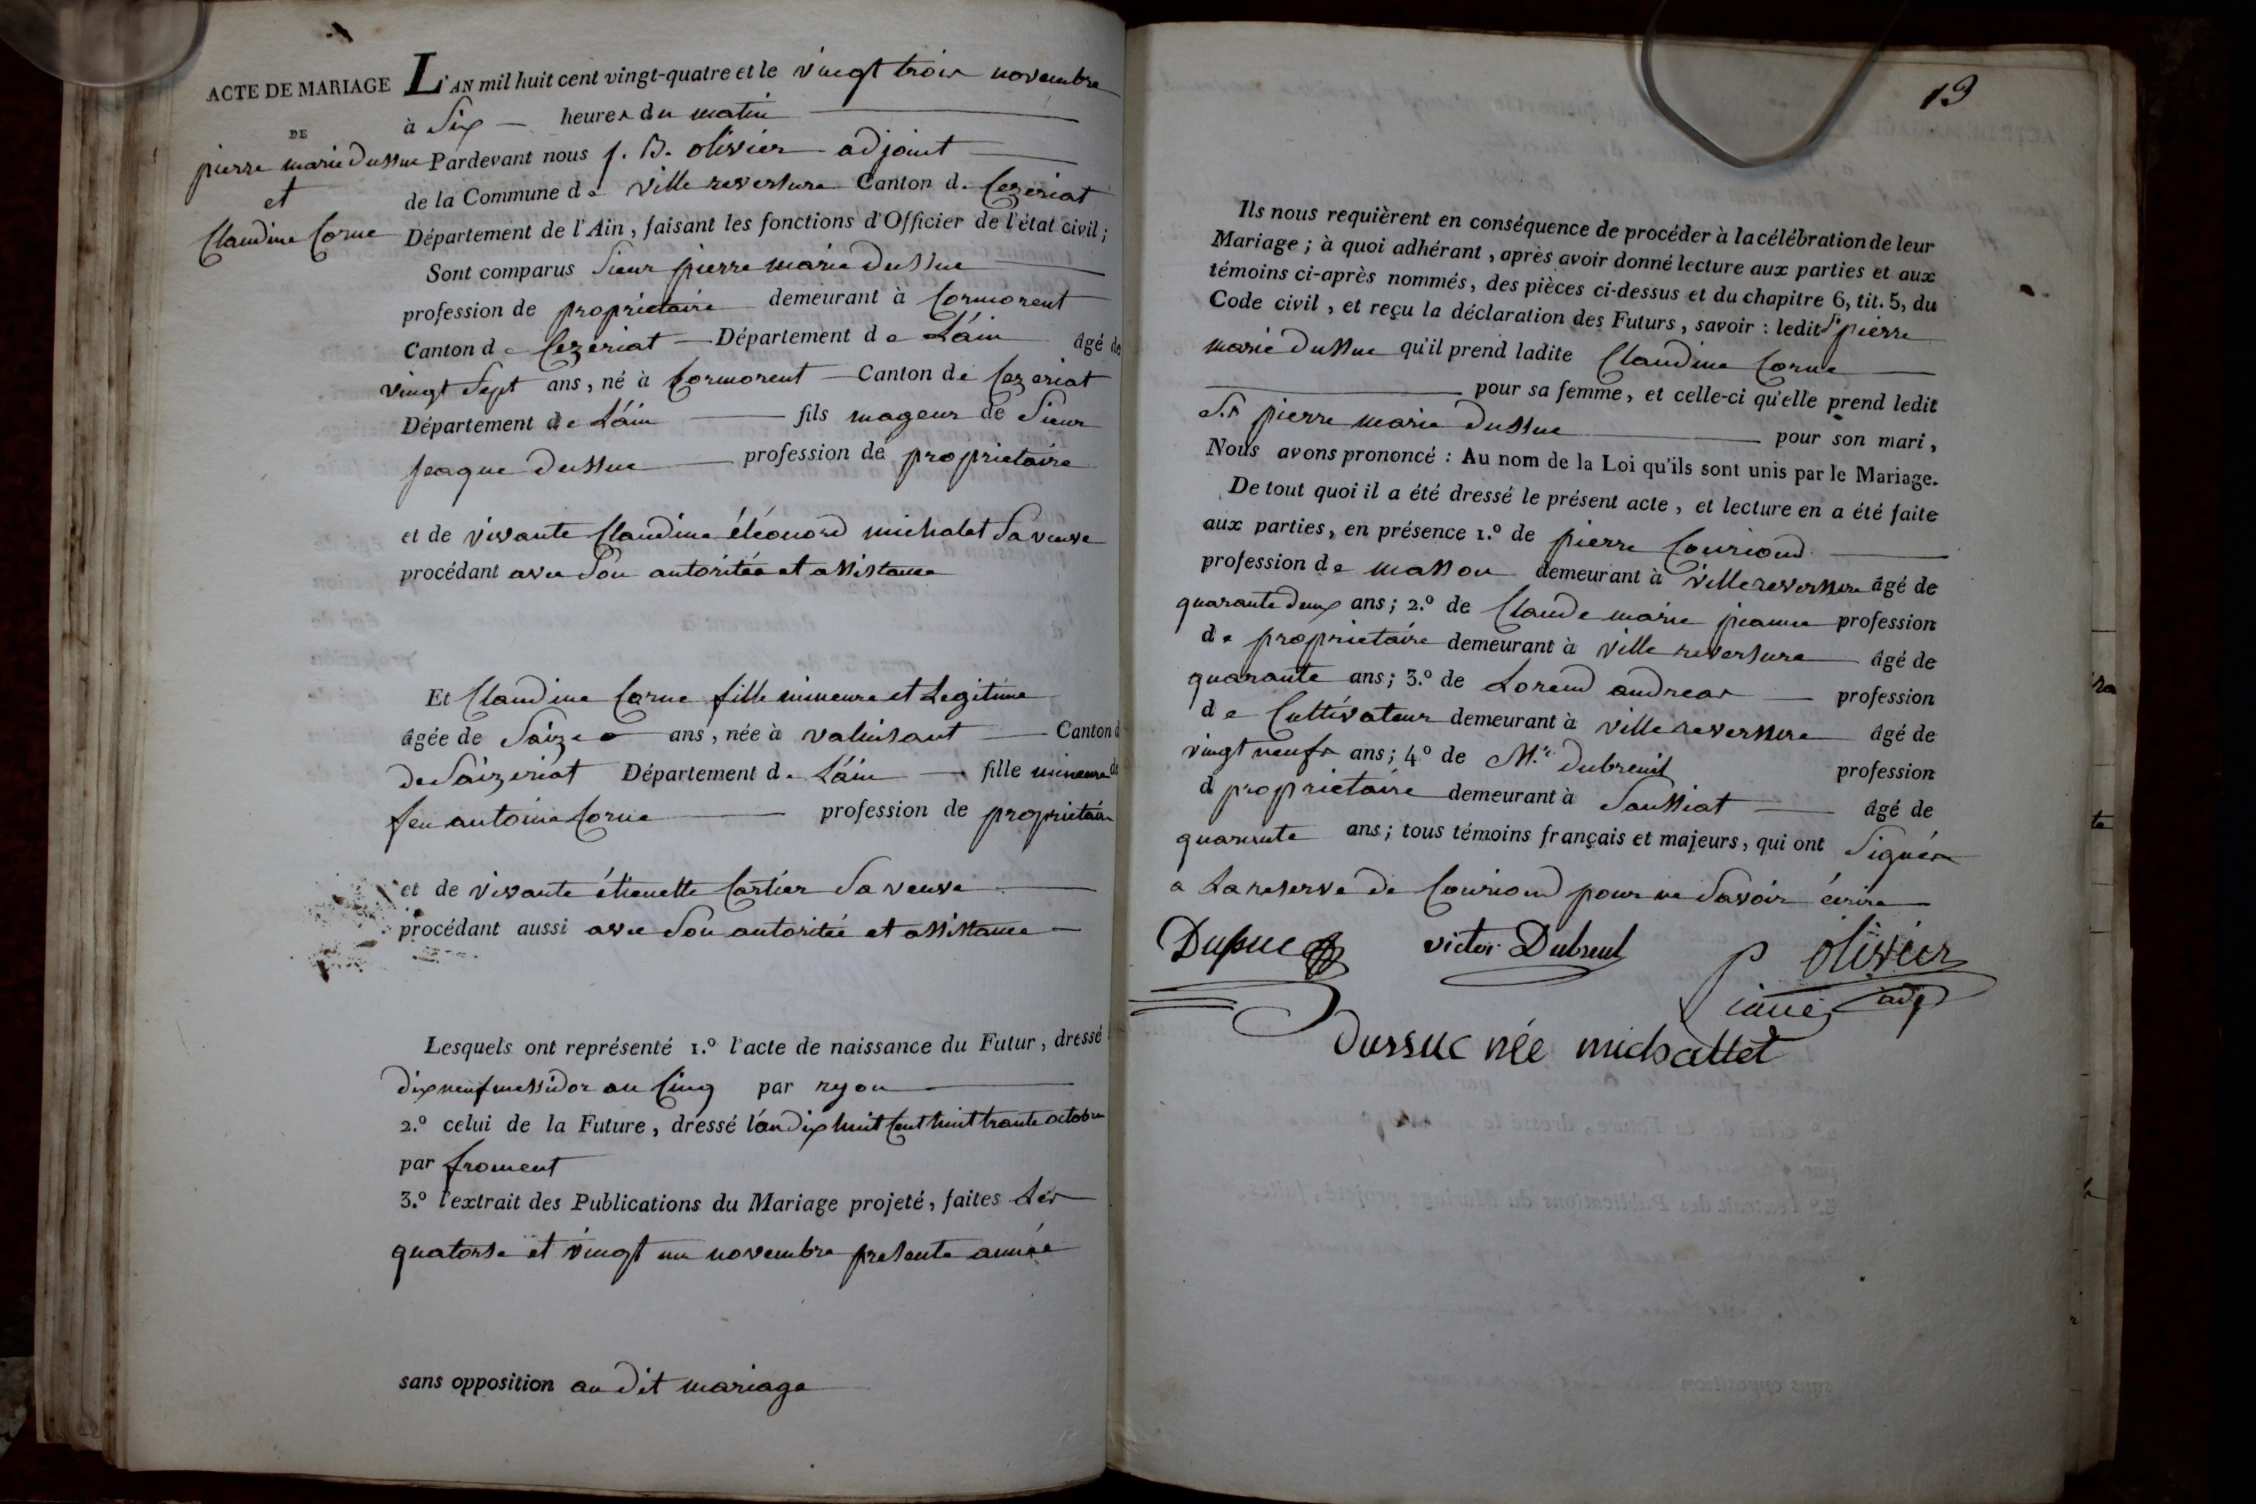 ACTE DE MARIAGE
DE
pierre marie dussuc
et
Claudine Cornu
L'AN mil huit cent vingt-quatre et le vingt trois novembre
à Six heures du matin
Pardevant nous j. B. olivier adjoint
de la Commune de ville reversure Canton d. Cezeriat
Département de l'Ain, faisant les fonctions d'Officier de l'état civil;
Sont comparus Sieur pierre marie dussuc
profession de proprietaire demeurant à Cormorent
Canton de Cezeriat Département de L'ain âgé de
vingt Sept ans, né à Cormorent Canton de Cezeriat
Département de L'ain fils mageur de Sieur
jeaque dussuc profession de proprietaire
et de vivante Claudine éléonord michalet Sa veuve
procédant avec Son autoritée et assistance
Et Claudine Cornu fille mineure et Legitime
âgée de Saize ans, née à valuisant Canton d
de Saizeriat Département d. L'ain fille mineure de
feu antoine Cornu profession de proprietaire
et de vivante étienette Cartier Sa veuve
procédant aussi avec Son autoritée et assistance
Lesquels ont représenté 1.º l'acte de naissance du Futur, dressé
dix neuf messidor an Cinq par ryon
2.º celui de la Future, dressé l'an dix huit Cent huit trante octobre
par froment
3.º l'extrait des Publications du Mariage projeté, faites Les
quatorse et vingt un novembre presente année
sans opposition au dit mariage
19
Ils nous requièrent en conséquence de procéder à la célébration de leur
Mariage; à quoi adhérant, après avoir donné lecture aux parties et aux
témoins ci-après nommés, des pièces ci-dessus et du chapitre 6, tit. 5, du
Code civil, et reçu la déclaration des Futurs, savoir: ledit Sr pierre
marie dussuc qu'il prend ladite Claudine Cornu
pour sa femme, et celle-ci qu'elle prend ledit
S.r pierre marie dussuc pour son mari,
Nous avons prononcé: Au nom de la Loi qu'ils sont unis par le Mariage.
De tout quoi il a été dressé le présent acte, et lecture en a été faite
aux parties, en présence 1.º de pierre Couriond
profession de masson demeurant à villereversure âgé de
quarante deux ans; 2.º de Claude marie pianne profession
de proprietaire demeurant à ville reversure âgé de
quarante ans; 3.º de Lorend andreas profession
de Cultivateur demeurant à ville reversure âgé de
vingt neufs ans; 4º de M.r dubreuil profession
d proprietaire demeurant à Saussiat âgé de
quarante ans; tous témoins français et majeurs, qui ont Signés
a La reserve de Couriond pour ne Savoir écrire
Dussuc victor Dubreul P olivier
adj
dussuc née michallet